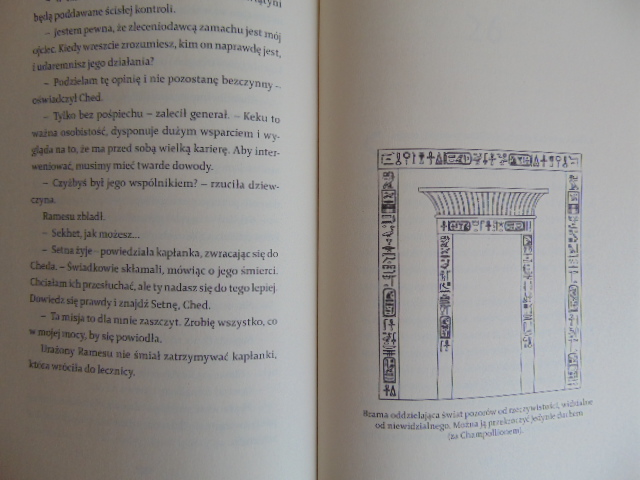 będą poddawane ścisłej kontroli.
– Jestem pewna, że zleceniodawcą zamachu jest mój
ojciec. Kiedy wreszcie zrozumiesz, kim on naprawdę jest,
i udaremnisz jego działania?
– Podzielam tę opinię i nie pozostanę bezczynny –
oświadczył Ched.
– Tylko bez pośpiechu – zalecił generał. – Keku to
ważna osobistość, dysponuje dużym wsparciem i wy-
gląda na to, że ma przed sobą wielką karierę. Aby inter-
weniować, musimy mieć twarde dowody.
– Czyżbyś był jego wspólnikiem? – rzuciła dziew-
czyna.
Ramesu zbladł.
– Sekhet, jak możesz...
– Setna żyje – powiedziała kapłanka, zwracając się do
Cheda. – Świadkowie skłamali, mówiąc o jego śmierci.
Chciałam ich przesłuchać, ale ty nadasz się do tego lepiej.
Dowiedz się prawdy i znajdź Setnę, Ched.
– Ta misja to dla mnie zaszczyt. Zrobię wszystko, co
w mojej mocy, by się powiodła.
Urażony Ramesu nie śmiał zatrzymywać kapłanki,
która wróciła do lecznicy.
Brama oddzielająca świat pozorów od rzeczywistości, widzialne
od niewidzialnego. Można ją przekroczyć jedynie duchem
(za Champollionem).